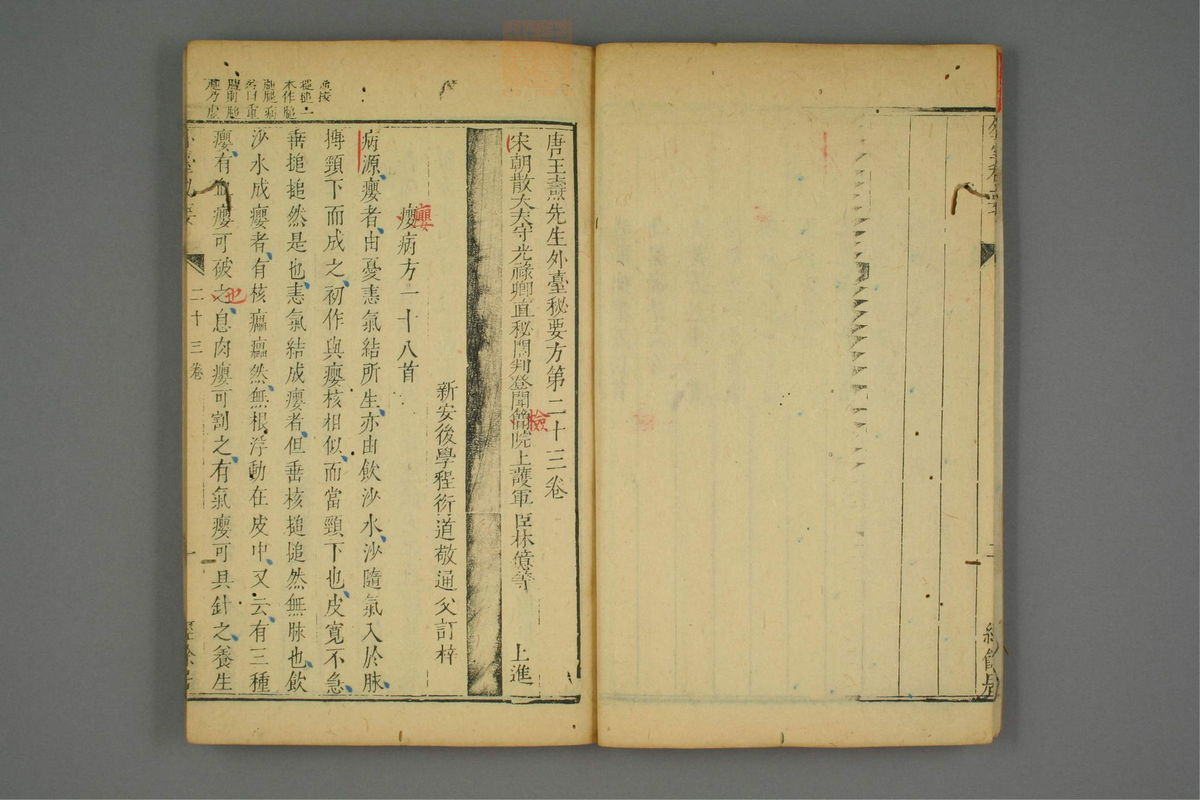 唐王燾先生外臺秘要方第二十三卷
宋朝散大夫守光祿卿直秘閣判登聞簡院上護軍臣林億等 上進
檢
新安後學程衍道敬通父訂梓
癭病方一十八首
癭
病源癭者由憂恚氣結所生亦由飲沙水沙隨氣入於脉
搏頸下而成之初作與癭核相似而當頸下也皮寬不急
垂搥搥然是也恚氣結成癭者但垂核搥搥然無脉也飲
沙水成癭者有核癗癗然無根浮動在皮中又云有三種
癭有血癭可破之息肉癭可割之有氣癭可具針之養生
也
二十三卷